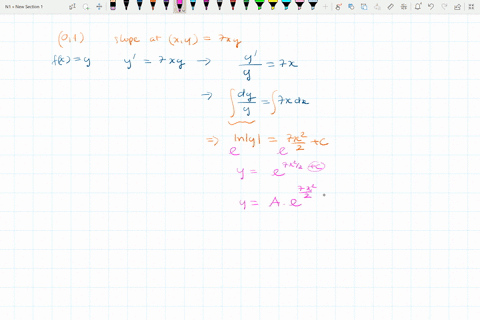 N1 » New Section 1
(0,1) slope at (x,y) = 7xy
f(x) = y y' = 7xy → y'/y = 7x
→ ∫ dy/y = ∫ 7x dx
⇒ ln|y| = 7x²/2 + c
e e
y = e^(7x²/2 + c)
y = A . e^(7x²/2)